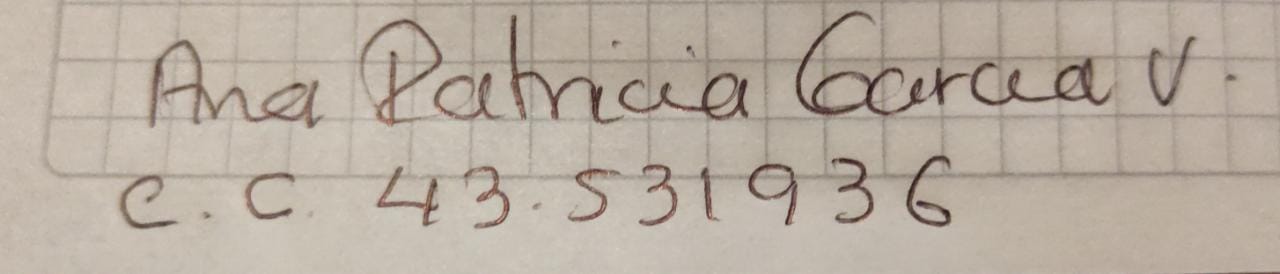 Ana Patricia Garcia V.
C.C. 43.531936